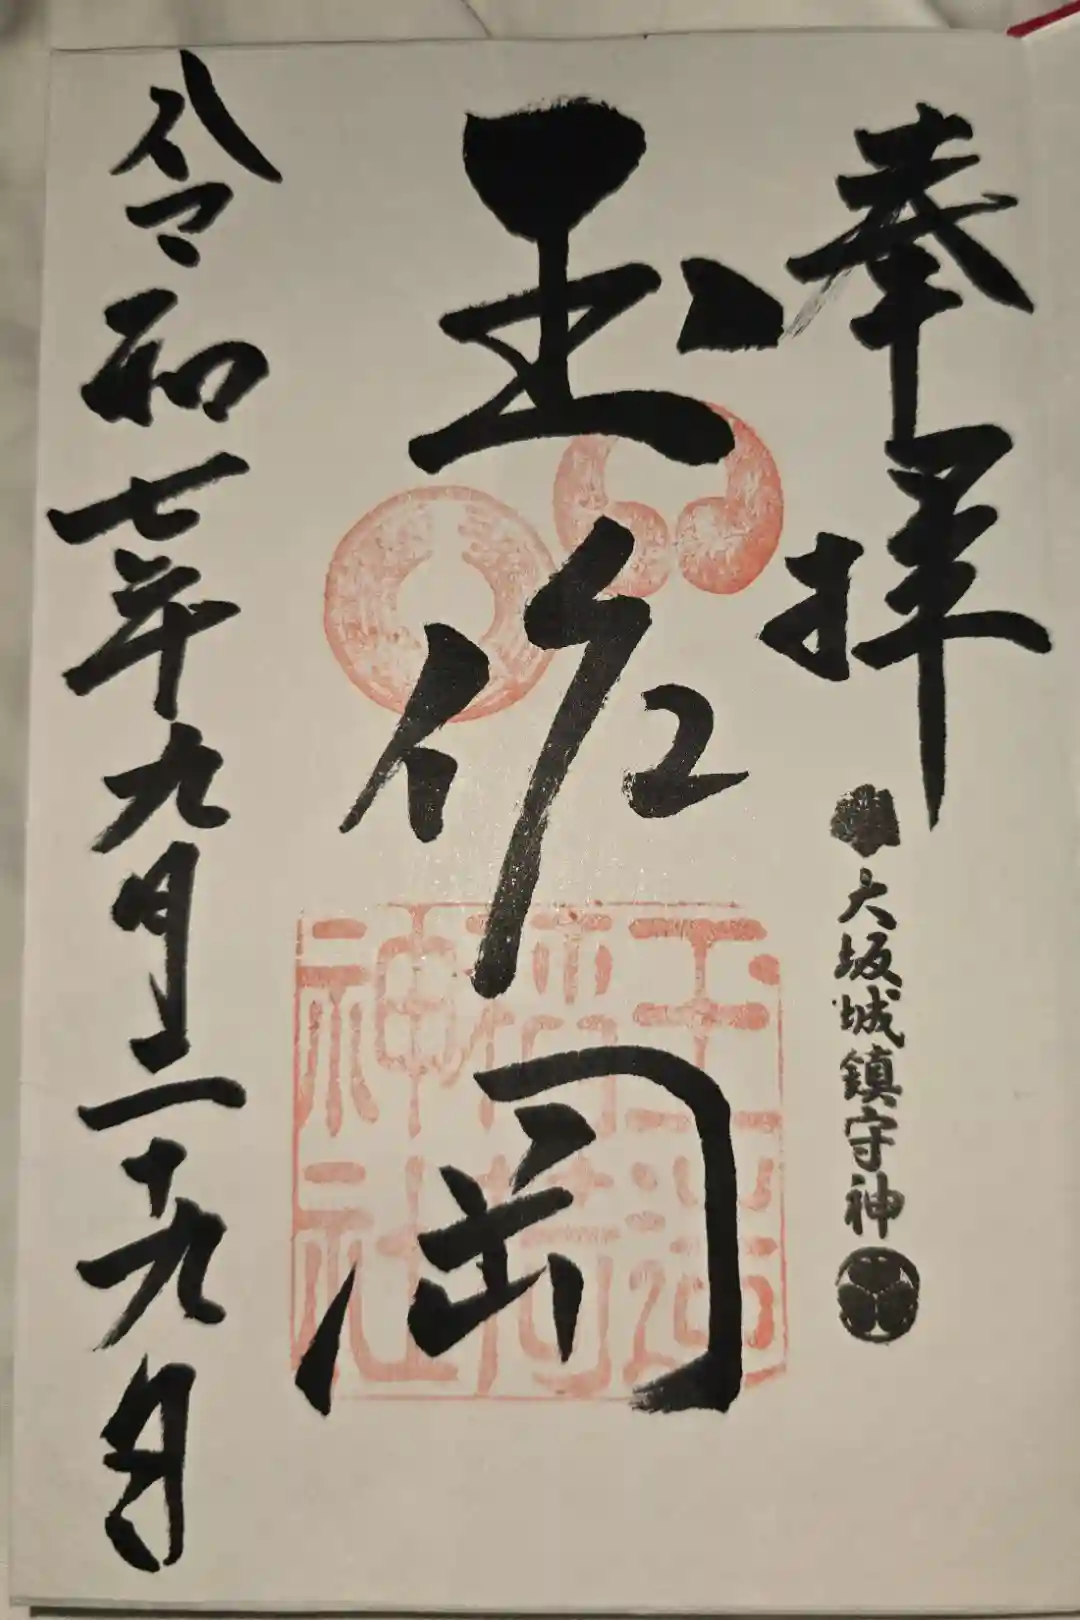 奉拝
大坂城鎮守神
玉作岡
玉造
稲荷
神社
令和七年九月二十九日